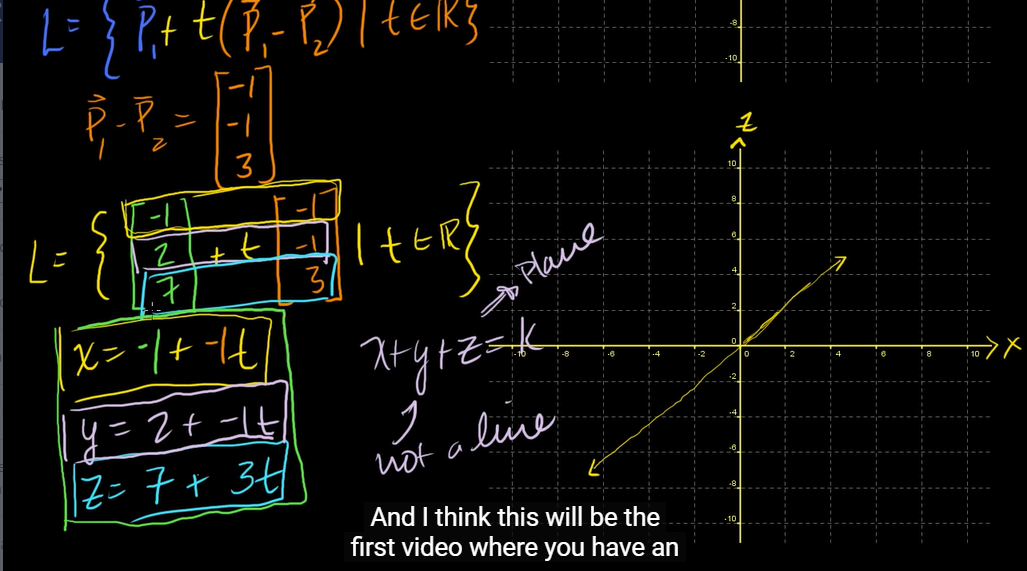 L = { P₁ + t(P₁ - P₂) | t ∈ ℝ}
P₁ - P₂ = [-1 -1 3]
L = { [-1 2 7] + t [-1 -1 3] | t ∈ ℝ}
x = -1 + -1t
y = 2 + -1t
z = 7 + 3t
Plane
x+y+z = k
not a line
-8
-10
z
10
8
6
4
2
0
-2
-4
-6
-8
-10
-10 -8 -6 -4 -2 0 2 4 6 8 10 x
And I think this will be the
first video where you have an